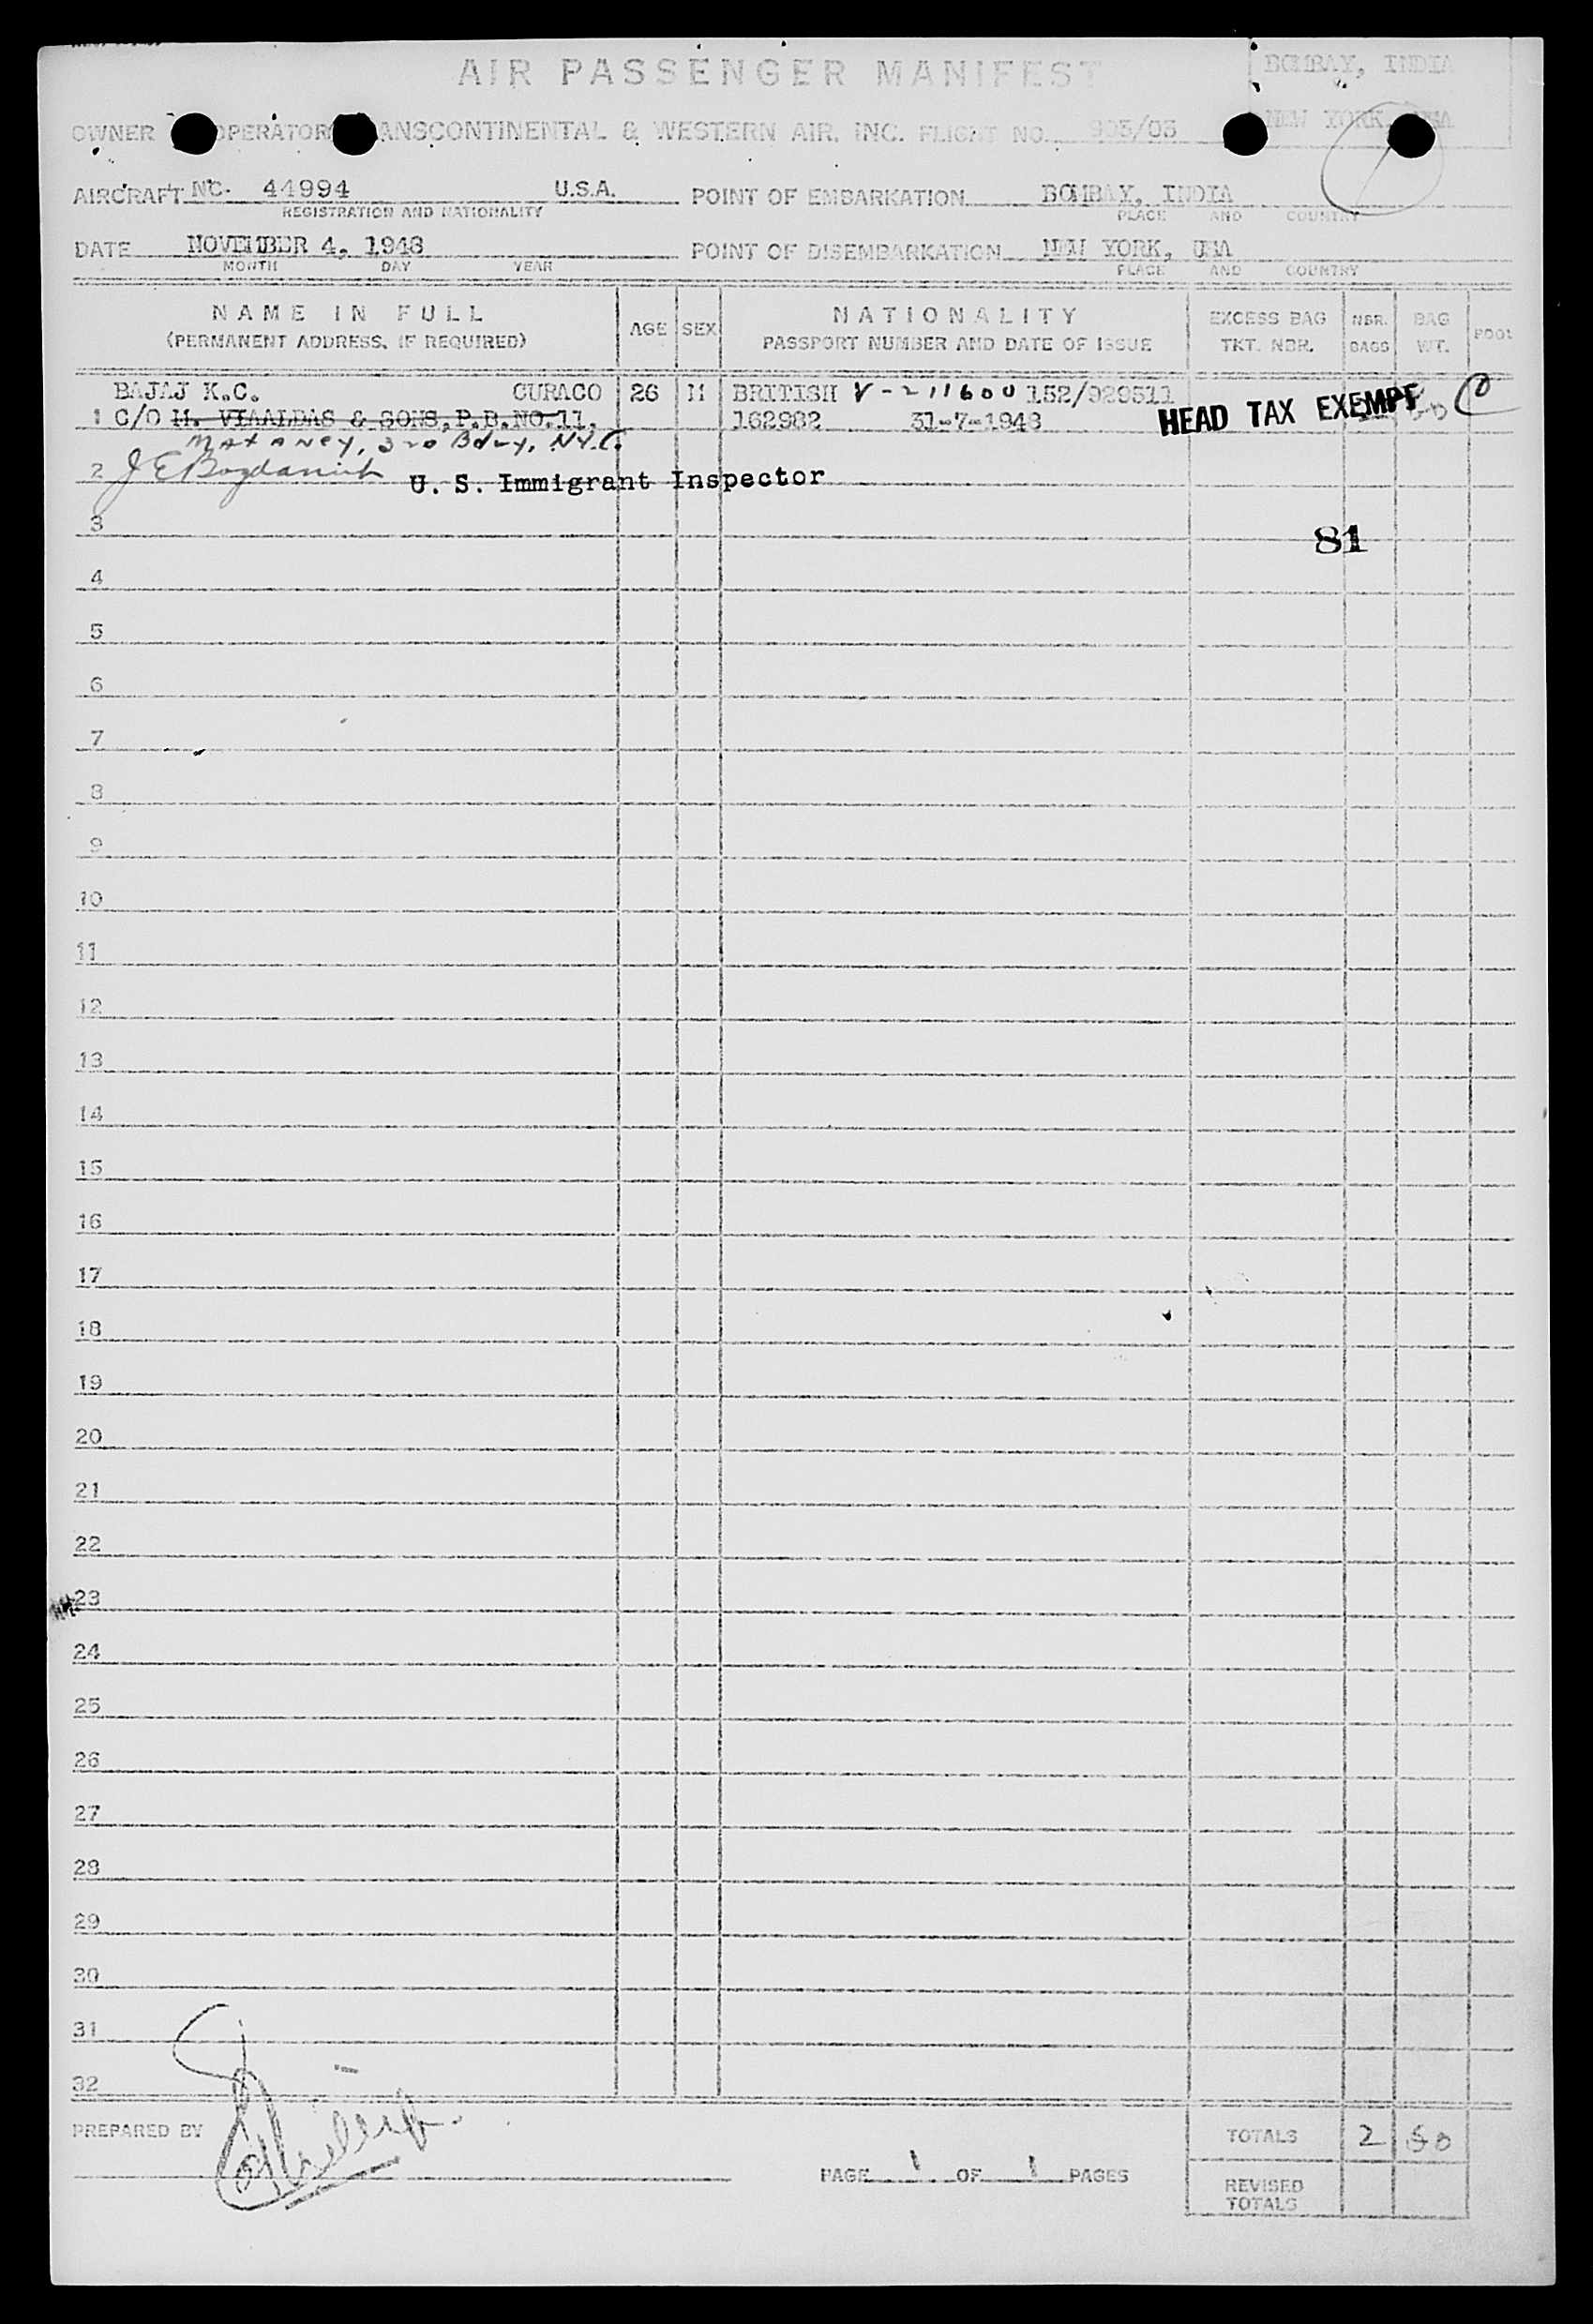 AIR PASSENGER MANIFEST
BOMBAY, INDIA
NEW YORK, USA
OWNER OPERATOR ANSCONTINENTAL & WESTERN AIR, INC. FLIGHT NO. 905/03
AIRCRAFT NC. 44994 U.S.A. POINT OF EMBARKATION BOMBAY, INDIA
REGISTRATION AND NATIONALITY PLACE AND COUNTRY
DATE NOVEMBER 4, 1948 POINT OF DISEMBARKATION NEW YORK, USA
MONTH DAY YEAR PLACE AND COUNTRY
NAME IN FULL
(PERMANENT ADDRESS, IF REQUIRED)
AGE SEX
NATIONALITY
PASSPORT NUMBER AND DATE OF ISSUE
EXCESS BAG
TKT. NBR.
NBR.
BAGS
BAG
WT.
POOL
BAJAJ K.C. CURACO 26 M BRITISH V-211600 152/929511
1 C/O & SONS, P.B.NO.11, 162982 31-7-1948 HEAD TAX EXEMPT
320 Bdwy, N.Y.C.
2 J E Bogdanich U. S. Immigrant Inspector
3
81
4
5
6
7
8
9
10
11
12
13
14
15
16
17
18
19
20
21
22
23
24
25
26
27
28
29
30
31
32
PREPARED BY
TOTALS 2 50
PAGE 1 OF 1 PAGES
REVISED
TOTALS